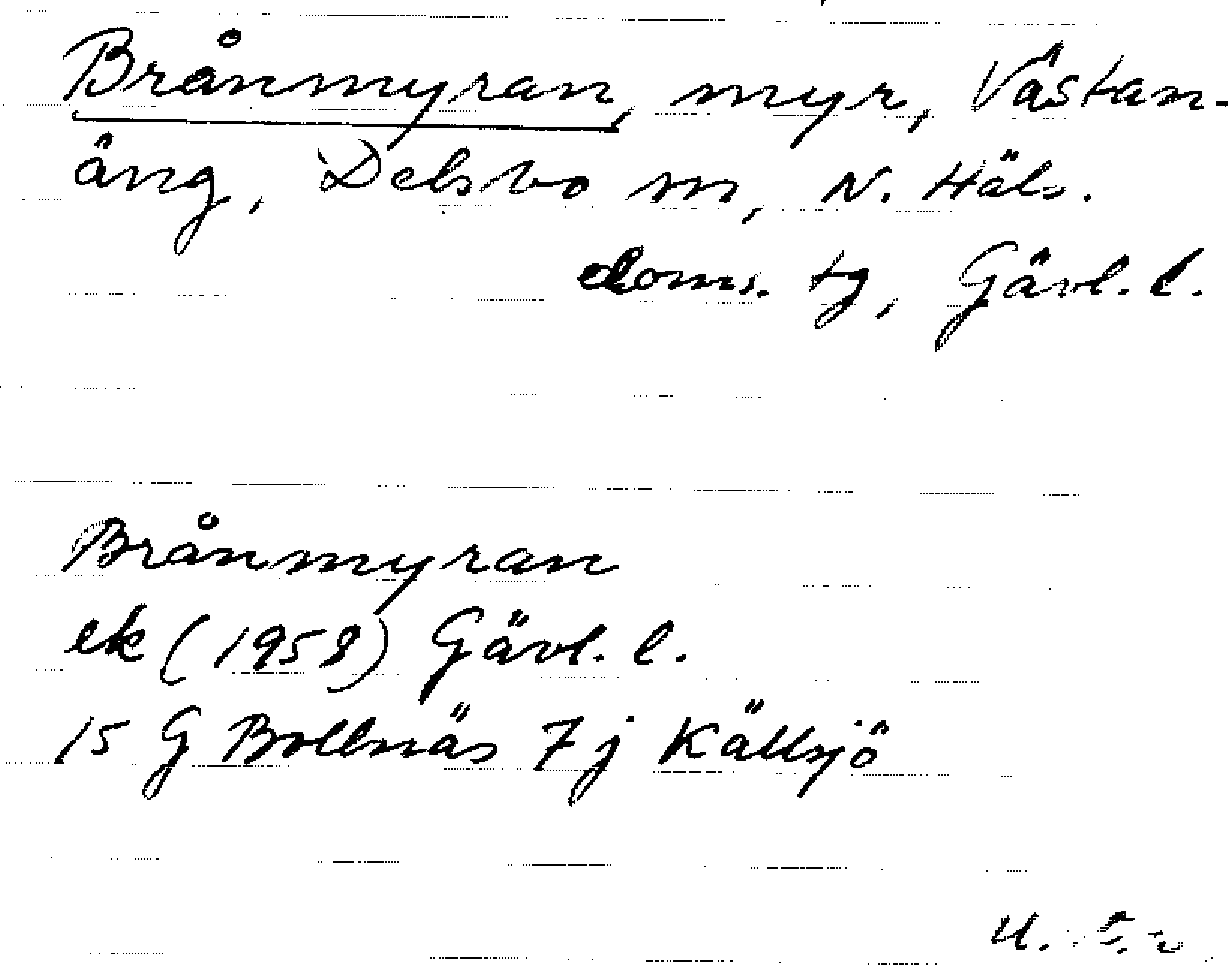 Brånmyran, myr, Västan-
äng, Delsbo sn, N. Häls.
doms. tg, Gävl. l.
Brånmyran
ek (1958) Gävl. l.
15 G Bollnäs 7 j Källsjö